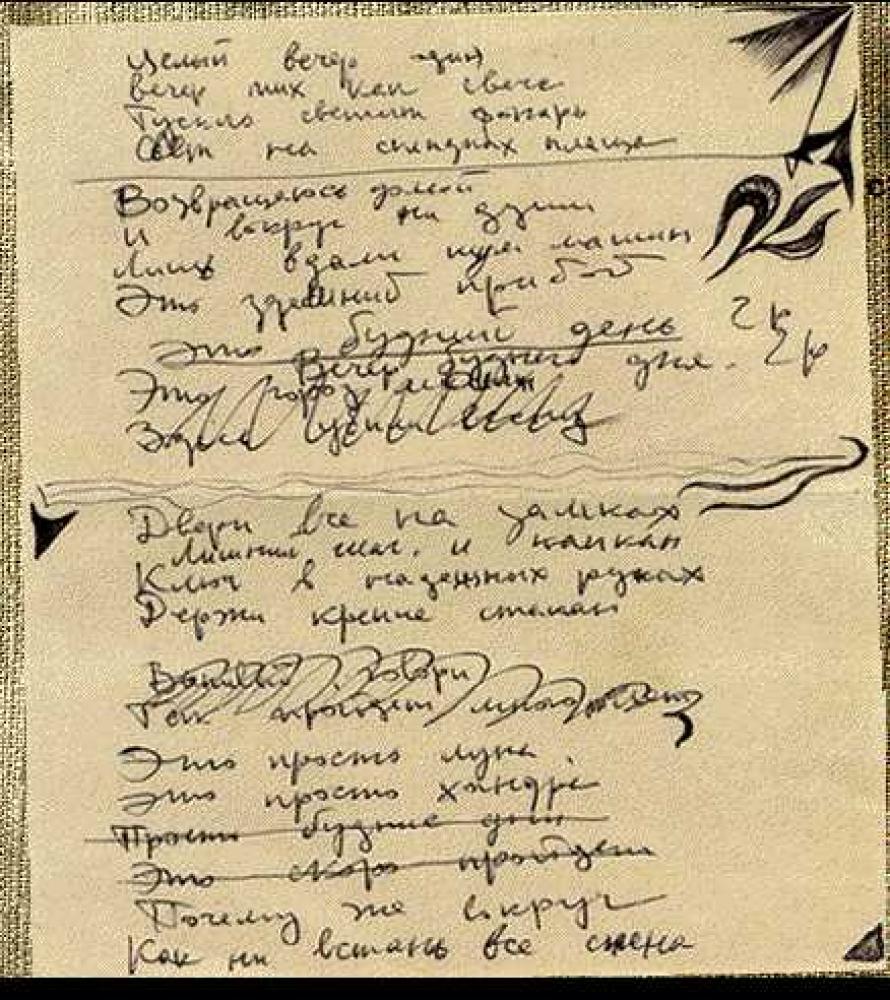 Целый вечер один
вечер тих как свеча
Тускло светит фонарь
Свет на спящих плащах
Возвращаюсь домой
И вокруг ни души
Лишь вдали шум машин
Это здешний прибой
Это будний день 2 р
Вечер буднего дня. 2 р
Это город
Здесь
Двери все на замках
Лишний шаг. и капкан
Ключ в надежных руках
Держи крепче стакан
говори
Так пройдет много
Это просто луна
Это просто хандра
Просто будние дни
Это скоро пройдет
Почему же вокруг
Как ни встань все стена